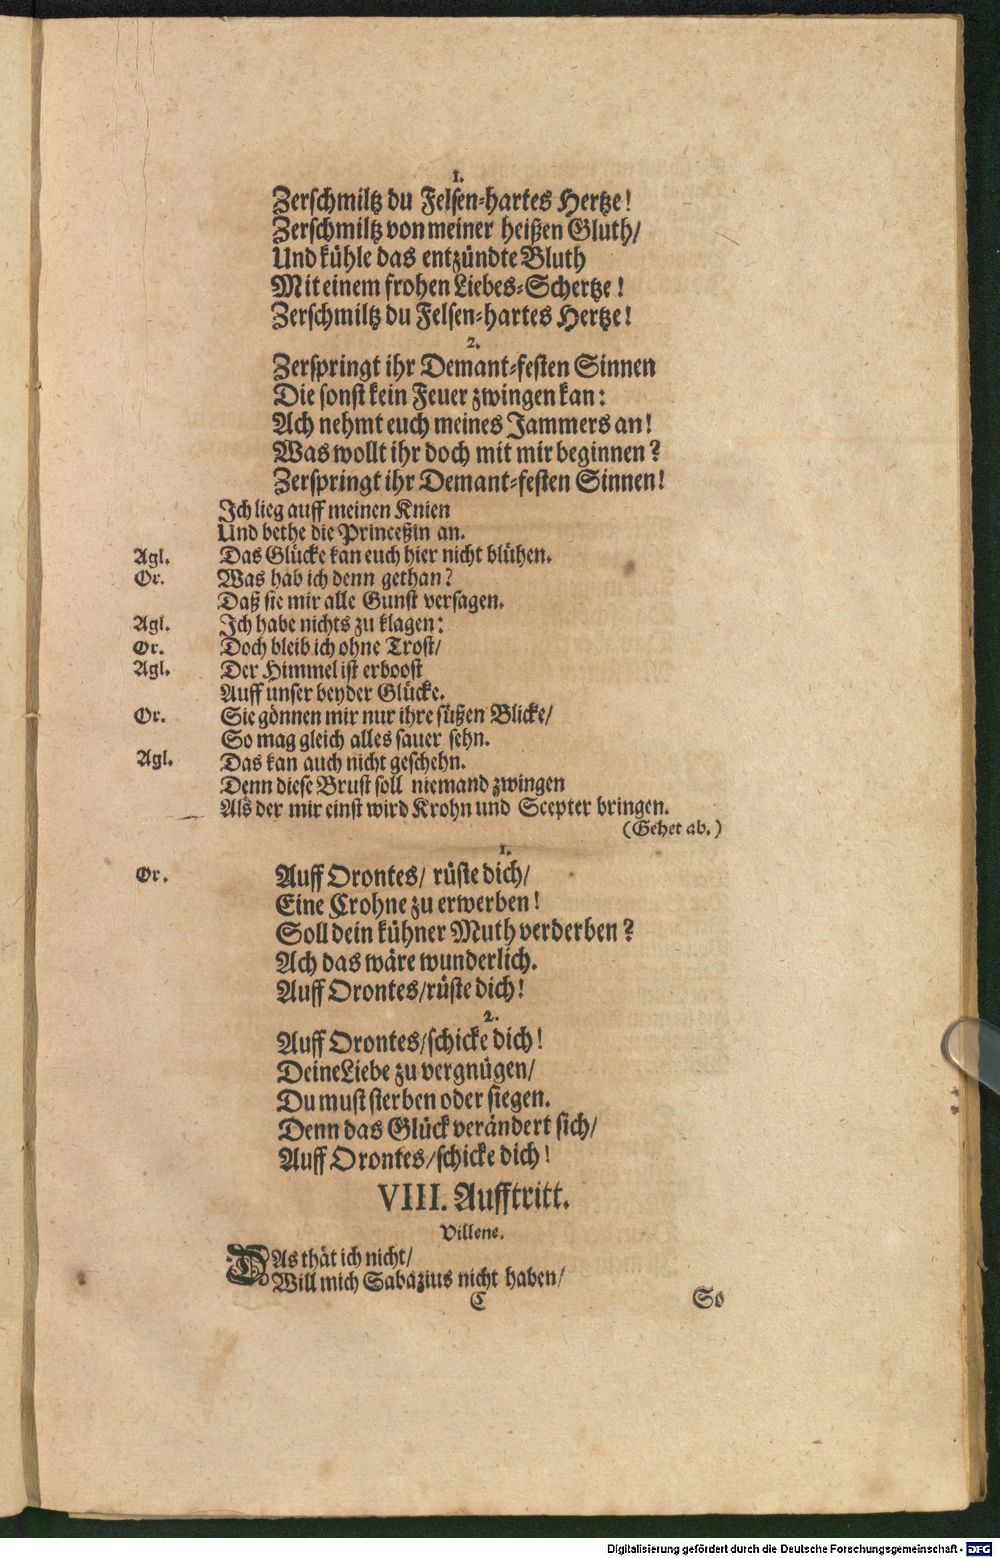 1.
Zerschmiltz du Felsen-hartes Hertze!
Zerschmiltz von meiner heißen Gluth/
Und kühle das entzündte Bluth
Mit einem frohen Liebes-Schertze!
Zerschmiltz du Felsen-hartes Hertze!
2.
Zerspringt ihr Demant-festen Sinnen
Die sonst kein Feuer zwingen kan:
Ach nehmt euch meines Jammers an!
Was wollt ihr doch mit mir beginnen?
Zerspringt ihr Demant-festen Sinnen!
Ich lieg auff meinen Knien
Und bethe die Princeßin an.
Agl. Das Glücke kan euch hier nicht blühen.
Or. Was hab ich denn gethan?
Daß sie mir alle Gunst versagen.
Agl. Ich habe nichts zu klagen:
Or. Doch bleib ich ohne Trost/
Agl. Der Himmel ist erboost
Auff unser beyder Glücke.
Or. Sie gönnen mir nur ihre süßen Blicke/
So mag gleich alles sauer sehn.
Agl. Das kan auch nicht geschehn.
Denn diese Brust soll niemand zwingen
Als der mir einst wird Krohn und Scepter bringen.
(Gehet ab.)
1.
Or. Auff Orontes/ rüste dich/
Eine Crohne zu erwerben!
Soll dein kühner Muth verderben?
Ach das wäre wunderlich.
Auff Orontes/rüste dich!
2.
Auff Orontes/schicke dich!
Deine Liebe zu vergnügen/
Du must sterben oder siegen.
Denn das Glück verändert sich/
Auff Orontes/schicke dich!
VIII. Aufftritt.
Villene.
DAs thät ich nicht/
Will mich Sabazius nicht haben/
C So
Digitalisierung gefördert durch die Deutsche Forschungsgemeinschaft - DFG